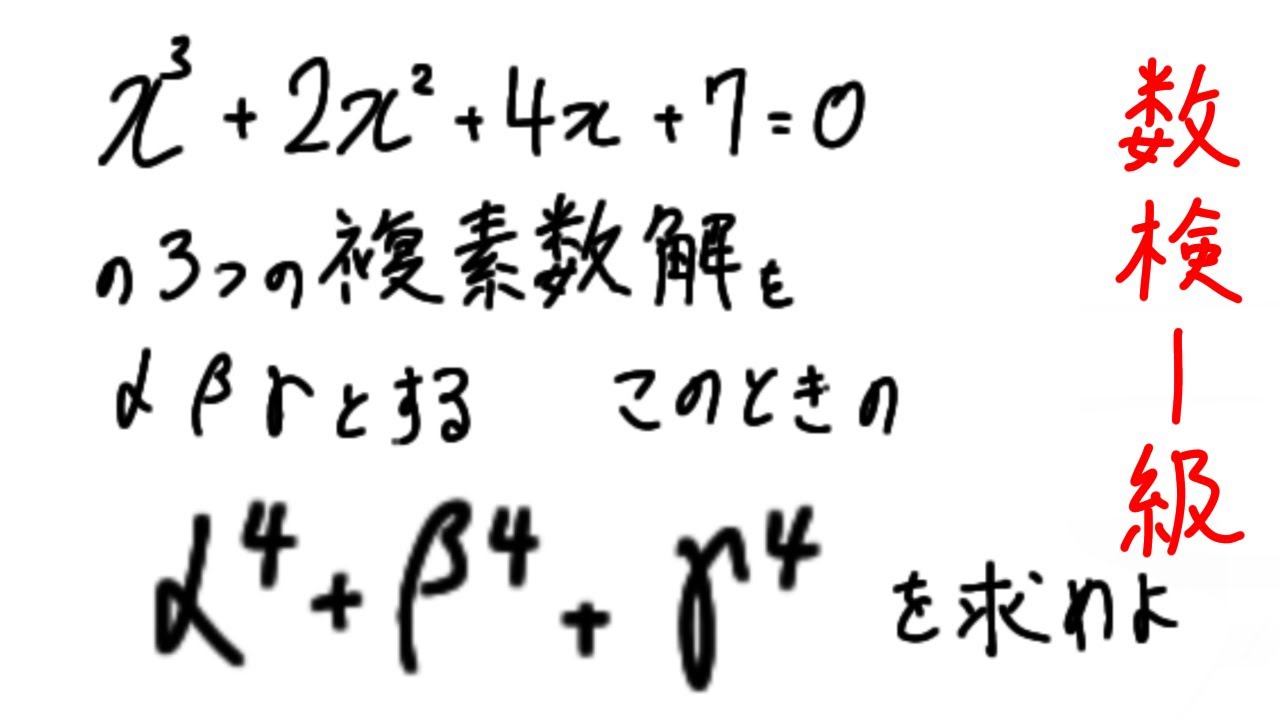 x³ + 2x² + 4x + 7 = 0
の3つの複素数解を
α β γとする このときの
α⁴ + β⁴ + γ⁴ を求めよ
数検一級